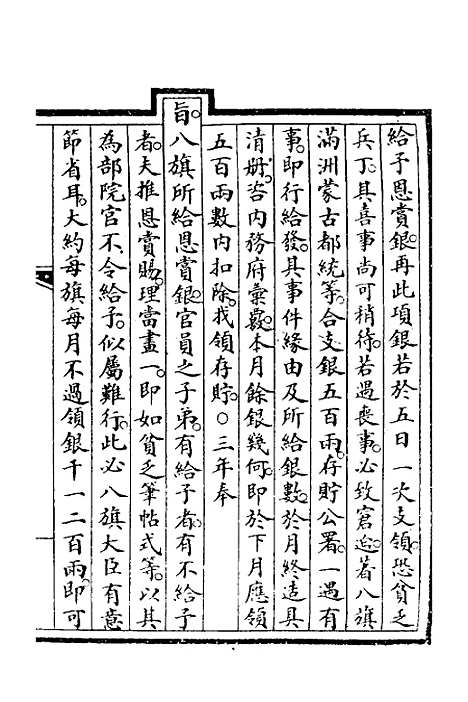 給予恩賞銀。再此項銀若於五日一次支領。恐貧乏
兵丁。其喜事尚可稍待。若遇喪事。必致窘迫。著八旗
滿洲蒙古都統等。合支銀五百兩。存貯公署。一遇有
事。即行給發。具事件緣由及所給銀數。於月終造具
清冊。咨內務府彙覈。本月餘銀幾何。即於下月應領
五百兩數內扣除。找領存貯。○三年奉
旨。八旗所給恩賞銀。官員之子弟。有給予者。有不給予
者。夫推恩賞賜。理當畫一。即如貧乏筆帖式等。以其
為部院官不令給予。似屬難行。此必八旗大臣有意
節省耳。大約每旗每月不過領銀千一二百兩。即可